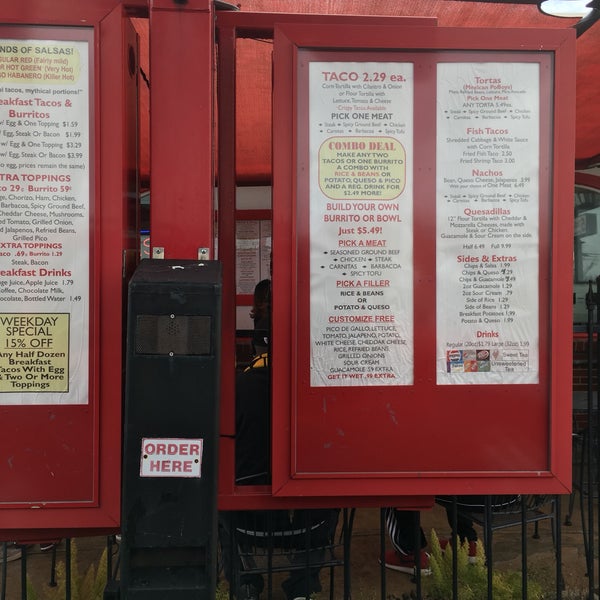 NDS OF SALSAS!
ULAR RED (Fairly mild)
R HOT GREEN (Very Hot)
O HABANERO (Killer Hot)
al tacos, mythical portions!"
eakfast Tacos &
Burritos
/ Egg & One Topping $1.59
Egg, Steak Or Bacon $1.99
/ Egg & One Topping $3.29
Egg, Steak Or Bacon $3.99
o egg, prices remain the same)
TRA TOPPINGS
Steak, Bacon
EXTRA TOPPINGS
aco .69¢ Burrito 1.29
eakfast Drinks
nge Juice, Apple Juice 1.79
offee, Chocolate Milk,
ocolate, Bottled Water 1.49
WEEKDAY
SPECIAL
15% OFF
Any Half Dozen
Breakfast
Tacos With Egg
& Two Or More
Toppings
ORDER
HERE
TACO 2.29 ea.
Corn Tortilla with Cilantro & Onion
or Flour Tortilla with
Lettuce, Tomato & Cheese
Crispy Tacos Available
PICK ONE MEAT
Steak Spicy Ground Beef Chicken
Carnitas Barbacoa Spicy Tofu
COMBO DEAL
MAKE ANY TWO
TACOS OR ONE BURRITO
A COMBO WITH
RICE & BEANS OR
POTATO, QUESO & PICO
AND A REG. DRINK FOR
$2.49 MORE!
BUILD YOUR OWN
BURRITO OR BOWL
Just $5.49!
PICK A MEAT
SEASONED GROUND BEEF
CHICKEN STEAK
CARNITAS BARBACOA
SPICY TOFU
PICK A FILLER
RICE & BEANS
OR
POTATO & QUESO
CUSTOMIZE FREE
PICO DE GALLO, LETTUCE,
TOMATO, POTATO,
WHITE CHEESE, CHEDDAR CHEESE,
RICE, REFRIED BEANS,
GRILLED ONIONS
SOUR CREAM
GUACAMOLE .59 EXTRA
GET IT WET .99 EXTRA
Tortas
(Mexican PoBoys)
Pick One Meat
ANY TORTA 5.49ea.
Steak Spicy Ground Beef Chicken
Carnitas Barbacoa Spicy Tofu
Fish Tacos
Shredded Cabbage & White Sauce
with Corn Tortilla
Fried Fish Taco 2.50
Fried Shrimp Taco 3.00
Nachos
Bean, Queso Cheese, Jalapenos 5.99
With your choice of One Meat 6.49
Steak Spicy Ground Beef Chicken
Carnitas Barbacoa Spicy Tofu
Quesadillas
12" Flour Tortilla with Cheddar &
Mozzarella Cheeses, made with
Steak or Chicken.
Guacamole & Sour Cream on the side.
Half 6.49 Full 9.99
Sides & Extras
Chips & Salsa 1.99
Chips & Queso
Chips & Guacamole
2oz Guacamole 1.29
2oz Sour Cream .79
Side of Rice 1.29
Side of Beans 1.29
Breakfast Potatoes 1.99
Potato & Queso 1.99
Drinks
Regular (20oz)$1.79 Large (32oz) 1.99
Sweet Tea
Unsweetened
Tea